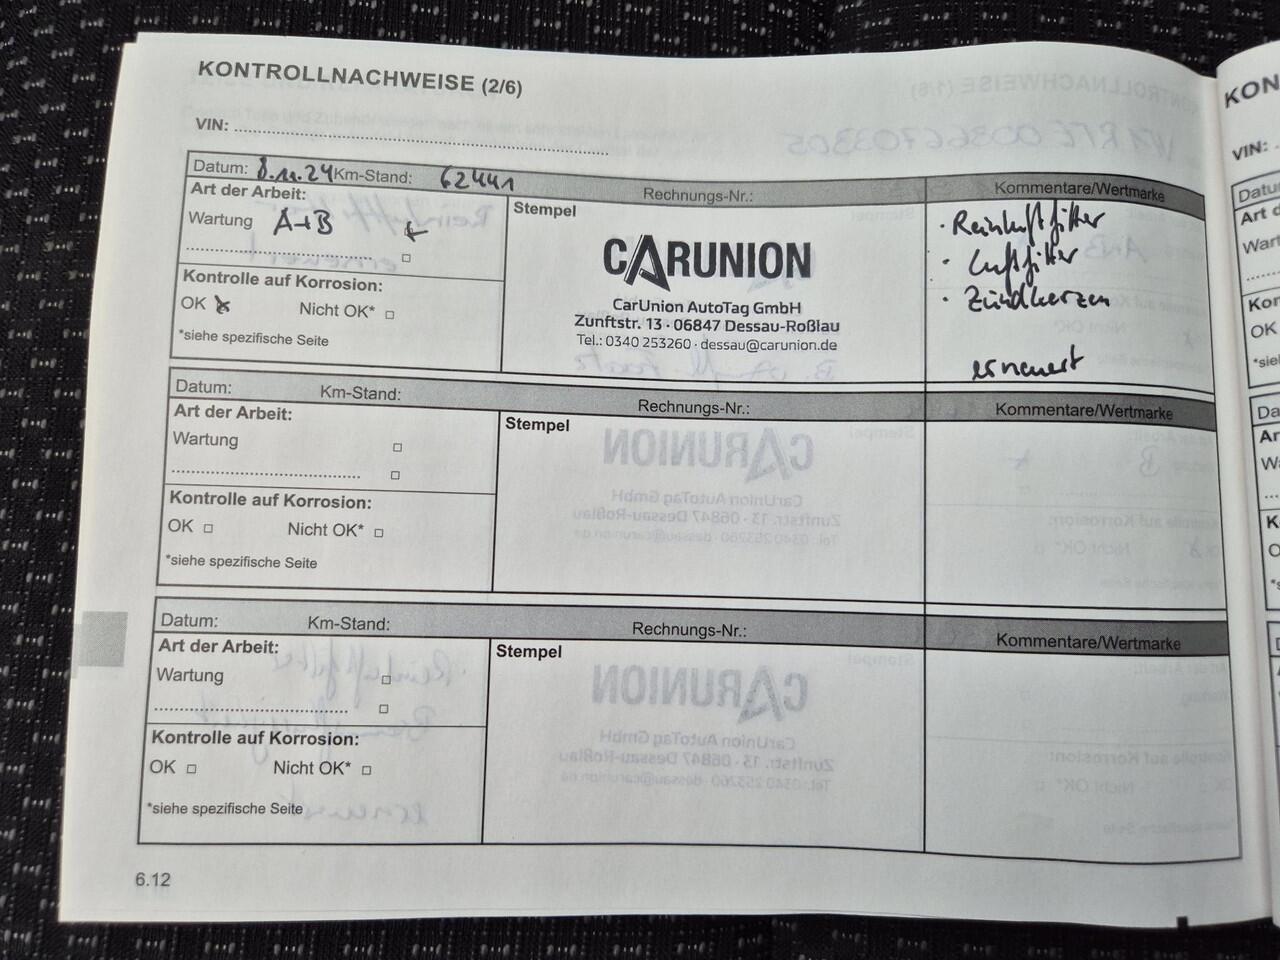 KONTROLLNACHWEISE (2/6)
VIN:
Datum: 8.11.24 Km-Stand: 62441 Rechnungs-Nr.: Kommentare/Wertmarke
Art der Arbeit:
Wartung A+B
Kontrolle auf Korrosion:
OK Nicht OK*
*siehe spezifische Seite
Stempel
CARUNION
CarUnion AutoTag GmbH
Zunftstr. 13 · 06847 Dessau-Roßlau
Tel.: 0340 253260 · dessau@carunion.de
· Reinluftfilter
· Luftfilter
· Zündkerzen
erneuert
Datum: Km-Stand: Rechnungs-Nr.: Kommentare/Wertmarke
Art der Arbeit:
Wartung
Kontrolle auf Korrosion:
OK Nicht OK*
*siehe spezifische Seite
Stempel
Datum: Km-Stand: Rechnungs-Nr.: Kommentare/Wertmarke
Art der Arbeit:
Wartung
Kontrolle auf Korrosion:
OK Nicht OK*
*siehe spezifische Seite
Stempel
6.12
VIN: